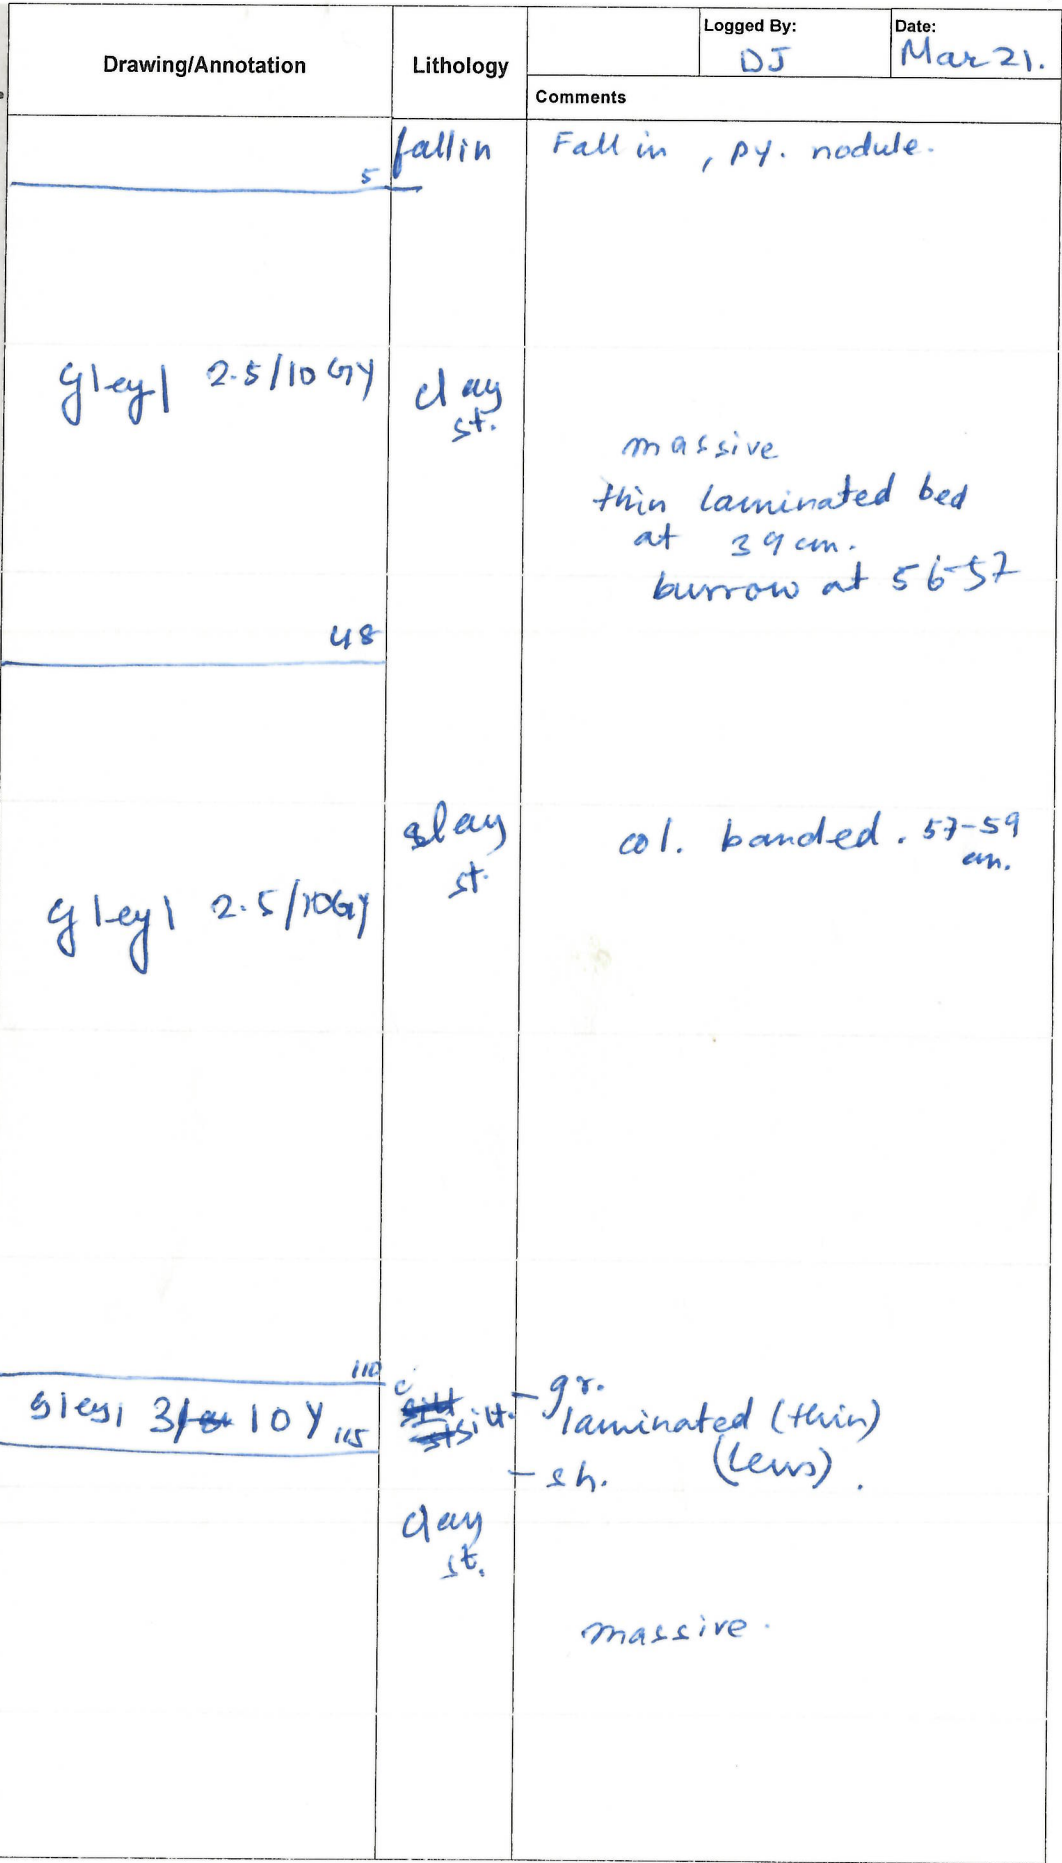 Drawing/Annotation Lithology Logged By: DJ Date: Mar 21.
Comments
fallin Fall in, py. nodule.
5
gley1 2.5/10GY clay
st.
massive
thin laminated bed
at 39 cm.
burrow at 56-57
48
clay col. banded. 57-59
st. cm.
gley1 2.5/10GY
110
gley1 3/ 10Y 115 silt. - gr.
laminated (thin)
(Lens).
- sh.
clay
st.
massive.